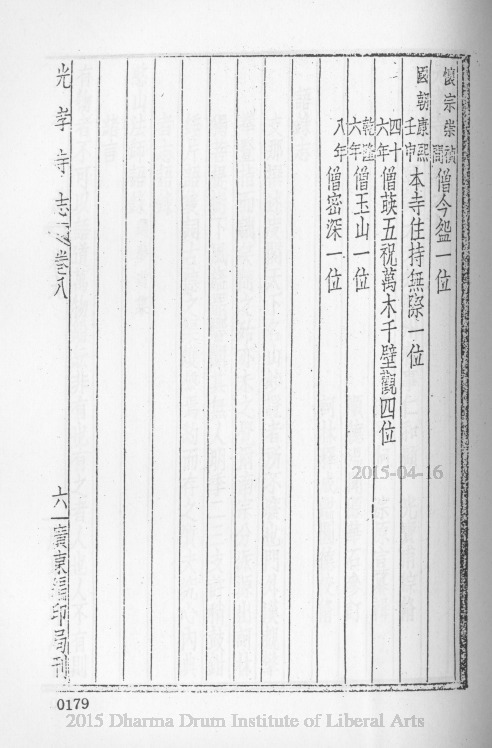 懷宗崇禎間僧今盌一位
國朝康熙壬申本寺住持無際一位
四十六年僧萸五祝萬木千壁觀四位
乾隆六年僧玉山一位
八年僧密深一位
光孝寺志 卷八
六 廣東編印局刊
2015-04-16
0179
2015 Dharma Drum Institute of Liberal Arts